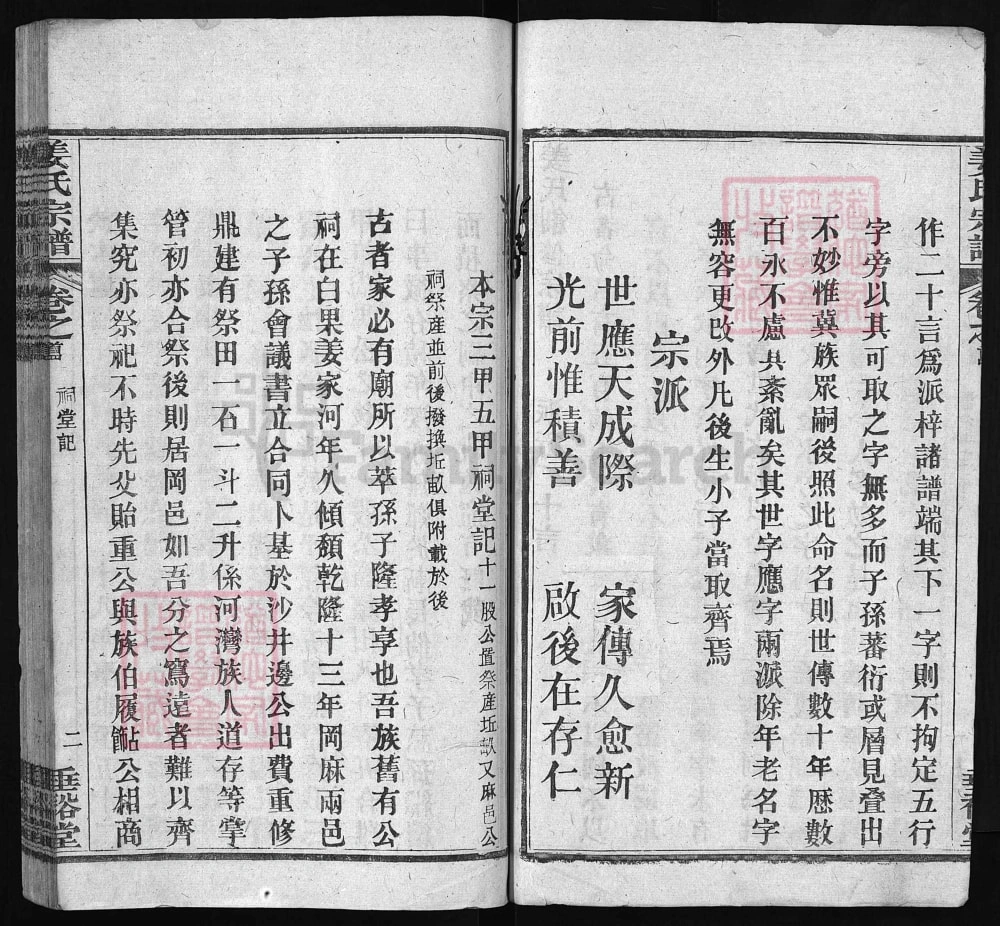 作二十言爲派梓諸譜端其下一字則不拘定五行
字旁以其可取之字無多而子孫蕃衍或層見叠出
不妙惟冀族眾嗣後照此命名則世傳數十年歷數
百永不慮其紊亂矣其世字應字兩派除年老名字
無容更改外凡後生小子當取齊焉
宗派
世應天成際 家傳久愈新
光前惟積善 啟後在存仁
本宗三甲五甲祠堂記十一股公置祭產坵畝又麻邑公
祠祭產並前後撥換坵畝俱附載於後
古者家必有廟所以萃孫子隆孝享也吾族舊有公
祠在白果姜家河年久傾頹乾隆十三年岡麻兩邑
之子孫會議書立合同卜基於沙井邊公出費重修
鼎建有祭田一石一斗二升係河灣族人道存等掌
管初亦合祭後則居岡邑如吾分之寫遠者難以齊
集究亦祭祀不時先父貽重公與族伯履鮕公相商
姜氏宗譜 卷之首 祠堂記 二 垂裕堂